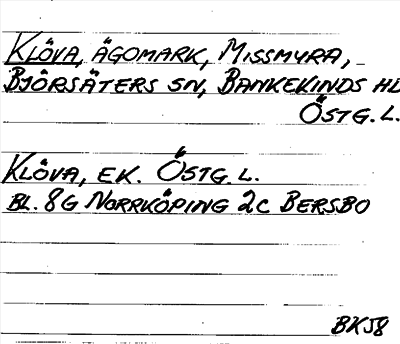 KLÖVA, ÄGOMARK, MISSMYRA,
BJÖRSÄTERS SN, BANKEKINDS HD
ÖSTG. L.
KLÖVA, EK. ÖSTG. L.
BL. 8G NORRKÖPING 2C BERSBO
BK58